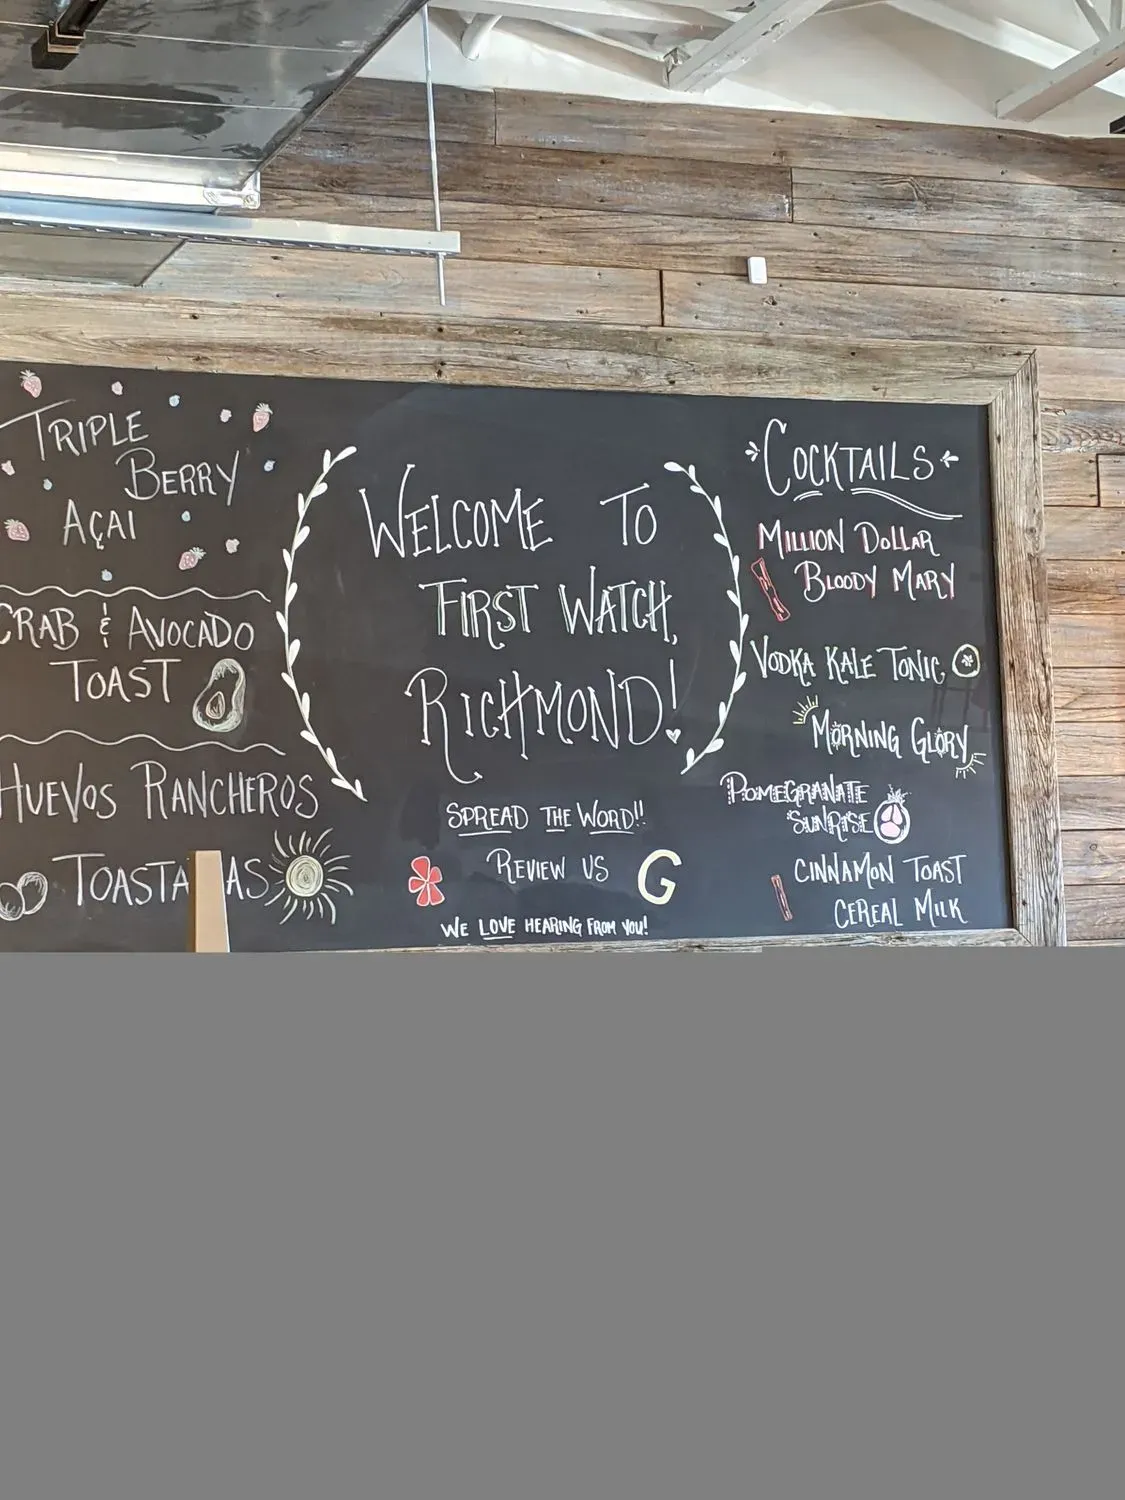 TRIPLE
BERRY
AÇAI
CRAB & AVOCADO
TOAST
HUEVOS RANCHEROS
WELCOME TO
FIRST WATCH,
RICHMOND!
SPREAD THE WORD!!
REVIEW US G
WE LOVE HEARING FROM YOU!
COCKTAILS
MILLION DOLLAR
BLOODY MARY
VODKA KALE TONIC
MORNING GLORY
POMEGRANATE
SUNRISE
CINNAMON TOAST
CEREAL MILK